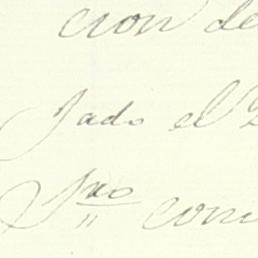 cion de
Jado el
Sno com